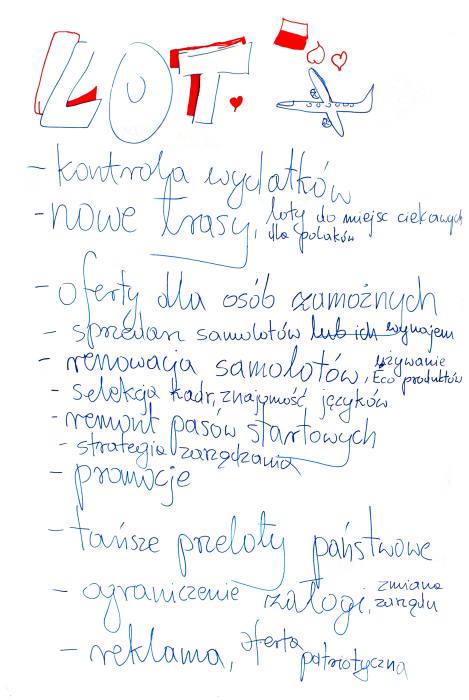 LOT.
- kontrola wydatków
- nowe trasy, loty do miejsc ciekawych
dla polaków
- oferty dla osób zamożnych
- sprzedarz samolotów lub ich wynajem
- renowacja samolotów, używanie
Eco produktów
- selekcja kadr, znajomość języków
- remont pasów startowych
- strategia zarządzania
- promocje
- tańsze przeloty państwowe
- ograniczenie załogi, zmiana
zarządu
- reklama, oferta
patriotyczna